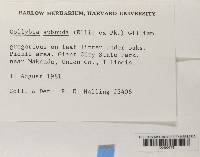 HARLOW HERBARIUM, HARVARD UNIVERSITY
Collybia subnuda (Ellis ex Pk.) Gilliam
gregarious on leaf litter under oaks.
Picnic area. Giant City State Park.
near Makanda, Union Co., Illinois
11 August 1981
Coll. & Det. R. E. Halling